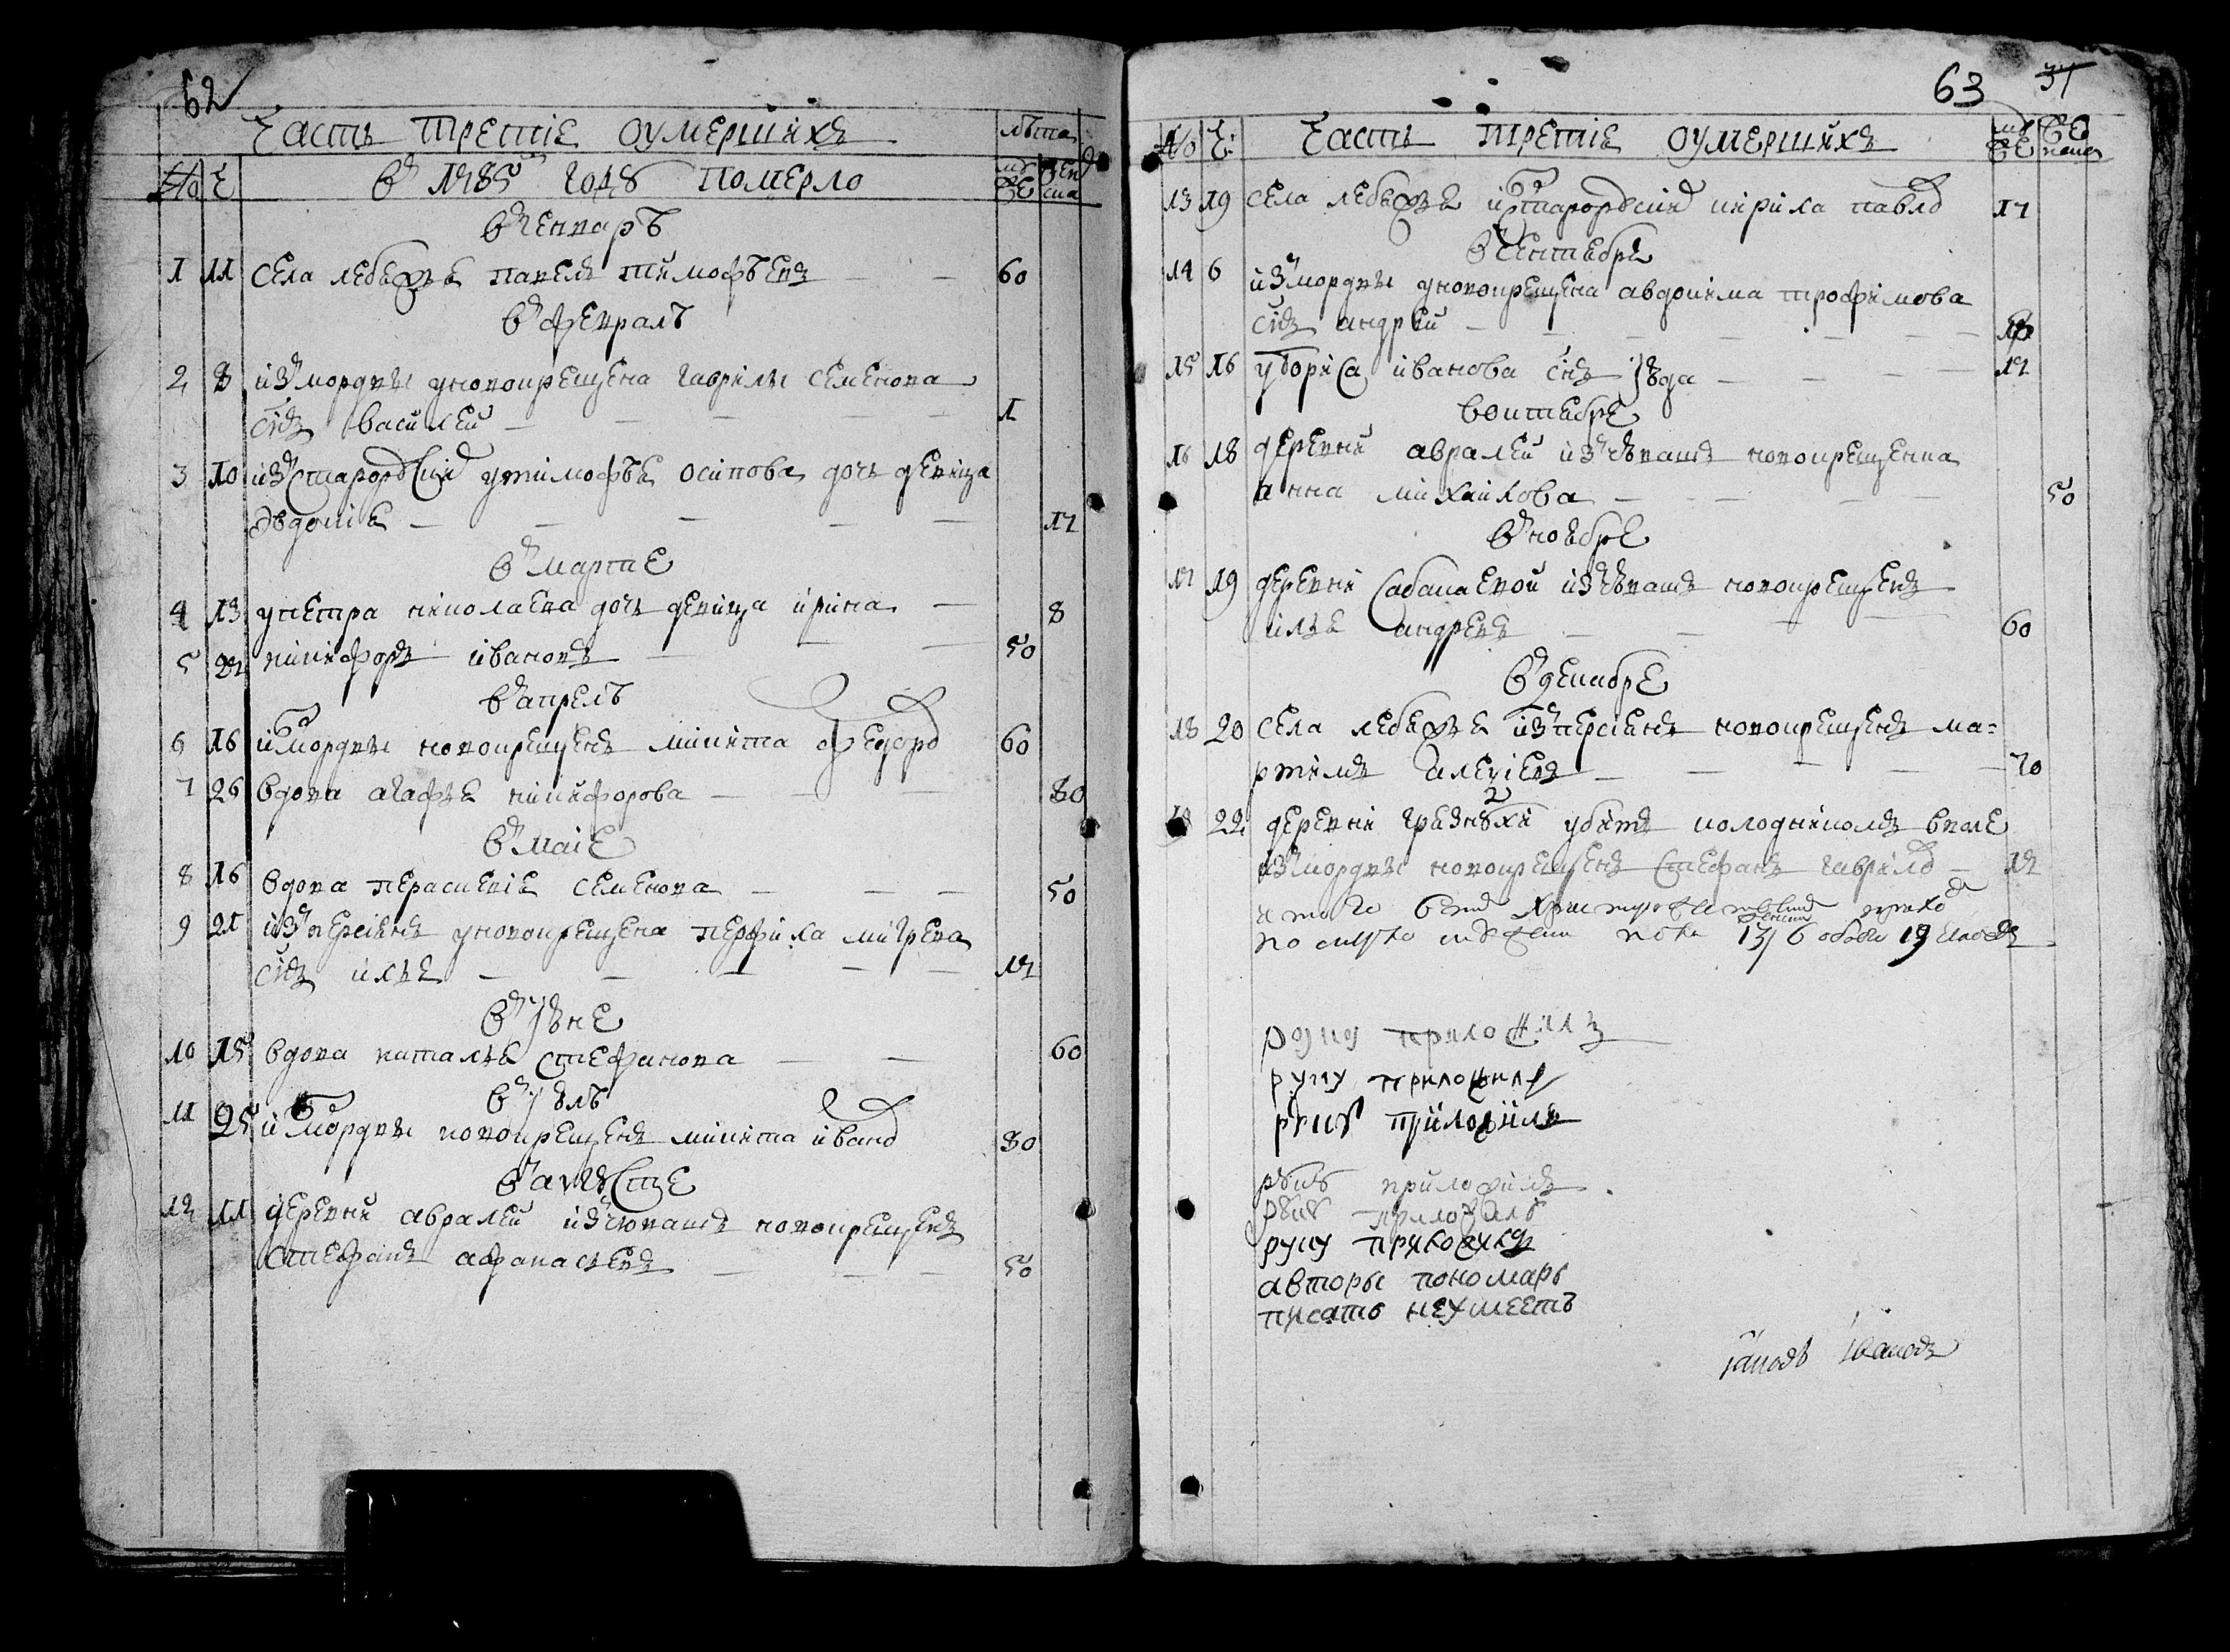 62
Часть третіе оумершихъ
лѣта
№ Ч
В 1785 году померло
муже женска
въ генварѣ
1 11 села лебежье павелъ тимофѣевъ — 60
въ февралѣ
2 8 изъ мордвы у новокрещена гаврилы семенова
снъ василей — 1
3 10 изъ старорускихъ у тимофѣе осипова дочь девица
евдокіе — 17
въ марте
4 13 у петра николаева дочь девица ирина — 8
5 22 никифоръ ивановъ — 50
въ апрелѣ
6 16 изъ мордвы новокрещенъ микита федоровъ 60
7 26 вдова агафье никифорова — 80
въ маіе
8 16 вдова пераскевіе семенова — 50
9 21 изъ персіенъ у новокрещена перфила
снъ илье — 12
въ іюне
10 15 вдова наталье стефанова — 60
въ іюлѣ
11 25 изъ мордвы новокрещенъ микита ивановъ 80
въ августе
12 11 деревни авралей изъ чювашъ новокрещенъ
стефанъ афанасьевъ — 50
63 31
№ Ч:
Часть третіе оумершихъ
муже женска
13 19 села лебежье из старорускихъ кирила павловъ 17
въ сентебре
14 6 изъ мордвы у новокрещена авдокима трофимова
снъ андрей —
15 16 у бориса иванова снъ іюда — 12
в октебре
16 18 деревни авралей изъ чювашъ новокрещенка
анна михайлова — 50
въ ноебре
17 19 деревни сабакаевой изъ чювашъ новокрещенъ
илье андреевъ — 60
въ декабре
18 20 села лебежье изъ персіенъ новокрещенъ ма=
ртинъ алексіевъ — 70
22 деревни грезнухи убитъ колодниколъ в поле
изъ мордвы новокрещенъ стефанъ гаврило — 12
итого
по мужеска 13 женска 6 обоего 19
руку приложилъ
руку приложилъ
руку приложилъ
руку приложилъ
руку приложилъ
руку приложилъ
авторы пономарь
писать неумеетъ
іаковъ Ивановъ